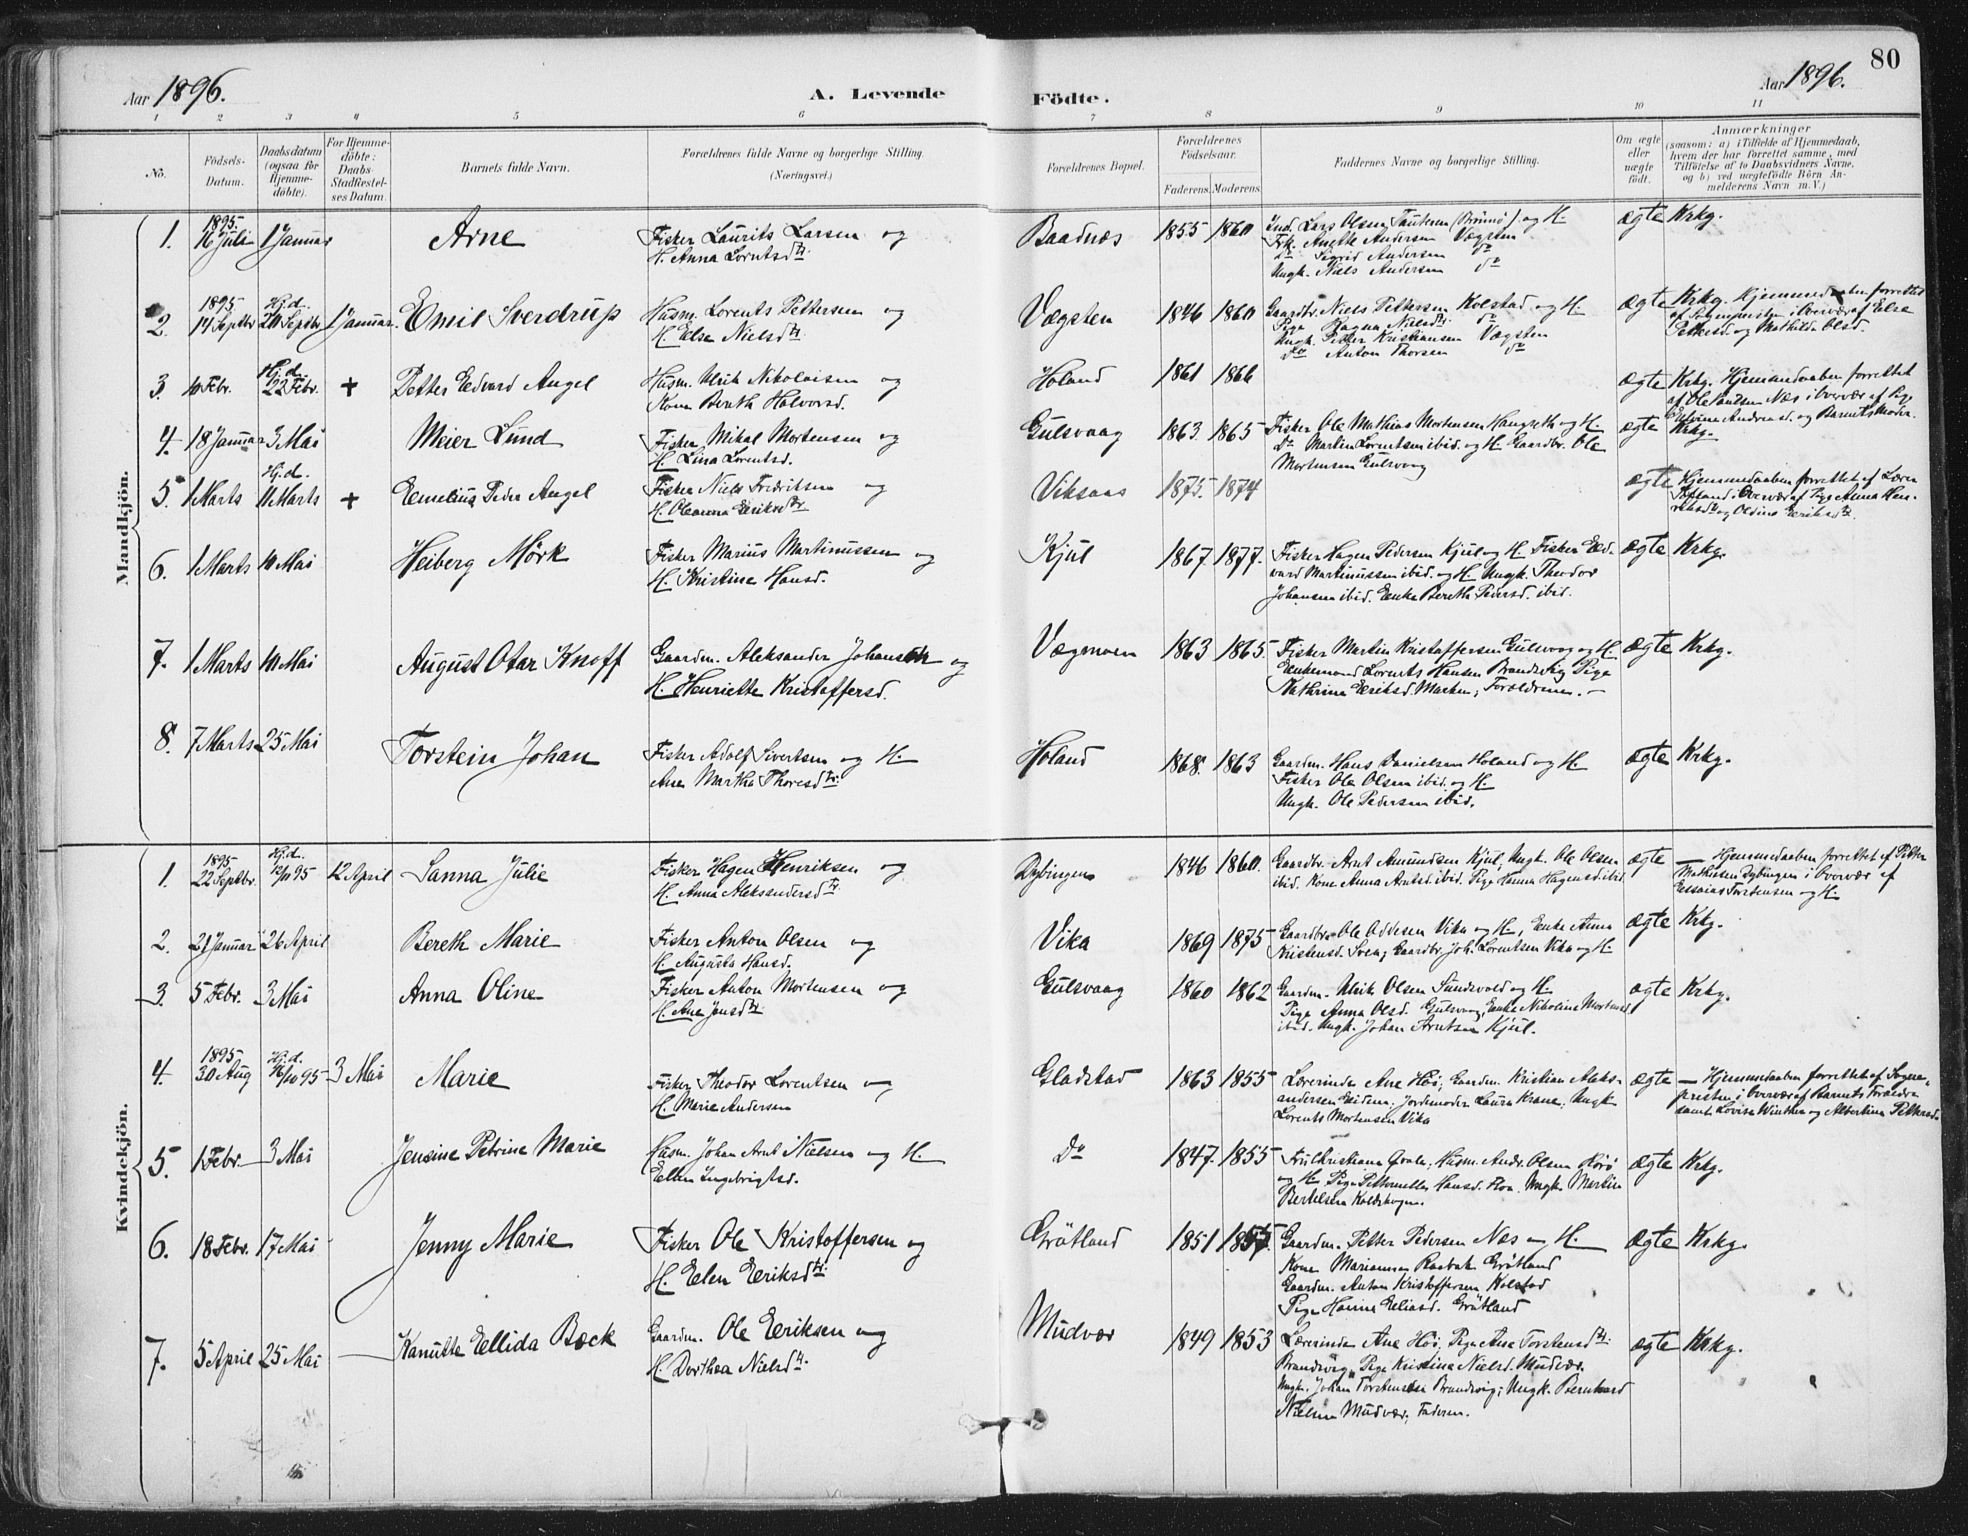 80
Aar 1896. A. Levende Födte. Aar 1896.
1 2 3 4 5 6 7 8 9 10 11
No. Födsels-Datum. Daabsdatum (ogsaa for Hjemme-döbte). For Hjemme-döbte: Daabs-Stadfæstel-ses Datum. Barnets fulde Navn. Forældrenes fulde Navne og borgerlige Stilling. (Næringsvei.) Forældrenes Bopæl. Forældrenes Födselsaar. Faderens. Moderens. Faddernes Navne og borgerlige Stilling. Om ægte eller uægte födt. Anmærkninger (saasom: a) i Tilfælde af Hjemmedaab, hvem der har forrettet samme, med Tilföielse af to Daabsvidners Navne, og b) ved uægtefödte Börn An-melderens Navn m. V.)
Mandkjön.
1. 1895. 16 Juli 1 Januar Arne Fisker Laurits Larsen og
H. Anna Lorntsdtr. Baadnæs 1855 1860 Ind. Lars Olsen, (Brönnö) og H.
Frk. Anette Andersen Vægsten
Do Sigrid Andersen do
Ungk. Niels Andersen do ægte Krkg.
2. 1895. 14 Septbr. Hj.d. 20 Septbr. 1 Januar. Emil Sverdrup Husm. Lorents Pettersen og
H. Else Nielsdtr. Vægsten 1846 1860 Gaardbr. Niels Pettersen Kolstad og H.
Pige Ragna Nielsdtr. do
Ungk. Peder Kristiansen Vægsten
do Anton Thorsen do ægte Krkg. Hjemmedaaben forrettet
af Sognepresten i Overvær af Else
Pettersd. og Mathilde Olsd.
3. 10 Febr. Hj.d. 22 Febr. + Petter Edvard Angel Husm. Ulrik Nikolaisen og
Kone Bereth Halvorsd. Holand 1861 1866 ægte Krkg. Hjemmedaaben forrettet
af Ole Paulsen Næs i Overvær af Pige
Andreasd. og Barnets Moder.
4. 18 Januar 3 Mai Meier Lund Fisker Mikal Mortensen og
H. Lina Lorentsd. Gulsvaag 1863. 1865 Fisker Ole Mathias Mortensen og H.
Do Martin Lorentsen ibid. og H. Gaardbr. Ole
Mortensen Gulsvaag ægte Krkg.
5. 1 Marts Hj.d. 11 Marts + Emelius Peder Angel Fisker Niels Fredriksen og
H. Oleanna Eriksdtr. Viksaas 1875. 1874 ægte Hjemmedaaben forrettet af Lærer
i Overvær af Pige Anna Hen-
riksdtr. og Oldine Eriksdtr.
6. 1 Marts 10 Mai Heiberg Mörk Fisker Marius Martinussen og
H. Kristine Hansd. Kjul 1867. 1877. Fisker Hagen Pedersen Kjul og H. Fisker Ed-
vard Martinussen ibid. og H. Ungk. Theodor
Johansen ibid. Enke Bereth Pedersd. ibid. ægte Krkg.
7. 1 Marts 10 Mai August Otar Knoff Gaardm. Aleksander Johansen og
H. Henriette Kristoffersd. Vægmoen 1863 1865. Fisker Martin Kristoffersen Gulsvaag og H.
Enkemand Lorents Hansen Brandsvig Pige
Kathrine Eriksd. Marken; Forældrene. – ægte Krkg.
8. 7 Marts 25 Mai Torstein Johan Fisker Adolf Sivertsen og H.
Ane Martha Thoresdtr. Holand 1868. 1863 Gaardm. Hans Danielsen Holand og H.
Fisker Ole Olsen ibid. og H.
Ungk. Ole Pedersen ibid. ægte Krkg.
Kvindekjön.
1. 1895 22 Septbr. Hj.d. 12/11 95 12 April Sanna Julie Fisker Hagen Henriksen og
H. Anna Aleksandersdtr. Dybingen 1846 1860. Gaardbr. Arnt Amundsen Kjul, Ungk. Ole Olsen
ibid. Kone Anna Arntsd. ibid. Pige Hanna Hagensd. ibid. ægte — Hjemmedaaben forrettet af Petter
Mathisen Dybingen i Overvær af
Essaias Torstensen og H.
2. 21 Januar 26 April Bereth Marie Fisker Anton Olsen og
H. Augusta Hansd. Vika 1869 1875 Gaardbr. Ole Oddesen Vika og H., Enke Anna
Kristensd. Svea; Gaardbr. Joh. Lorentsen Vika og H. ægte Krkg.
3. 5 Febr. 3 Mai Anna Oline Fisker Anton Mortensen og
H. Ane Jensdtr. Gulsvaag 1860 1862 Gaardm. Ulrik Olsen Sundsvold og H.
Pige Anna Olsd. Gulsvaag, Enke Nikoline Mortensd.
ibid. Ungk. Johan Arntsen Kjul. ægte Krkg.
4. 1895 30 Aug Hj.d. 16/10 95 3 Mai Marie Fisker Theodor Lorentsen og
H. Marie Andersen Gladstad 1863 1855 Lærerinde Ane Höi, Gaardm. Kristian Aleks-
andersen Eidem. Jordemoder Laura Krane; Ungk.
Lorents Mortensen Vika ægte — Hjemmedaaben forrettet af Sogne-
presten i Overvær af Barnets Forældre
samt Lovise Winther og Albertine Pettersd.
5. 1 Febr. 3 Mai Jensine Petrine Marie Husm. Johan Arnt Nielsen og H.
Ellen Ingebrigtsd. Do 1847. 1855 Fru Christiane Qvale; Husm. Andr. Olsen Rörö
og H. Pige Petternelle Hansd. Floa. Ungk. Martin
Bertelsen Koldskogen. ægte Krkg.
6. 18 Febr. 17 Mai Jenny Marie Fisker Ole Kristoffersen og
H. Elen Eriksdtr. Grötland 1851 1857. Gaardm. Petter Pedersen Næs og H.
Kone Marianna Raabak Grötland
Gaardm. Anton Kristoffersen Kolstad
Pige Hanna Eliasd. Grötland ægte Krkg.
7. 5 April 25 Mai Kanutte Ellida Bæck Gaardm. Ole Eriksen og
H. Dorthea Nielsdtr. Mudvær 1849 1853 Lærerinde Ane Höi, Pige Ane Torstensdtr.
Brandsvig, Pige Kristine Nielsd. Mudvær.
Ungk. Johan Torstensen Brandsvig; Ungk. Bernhard
Nielsen Mudvær; Faderen. ægte Krkg.